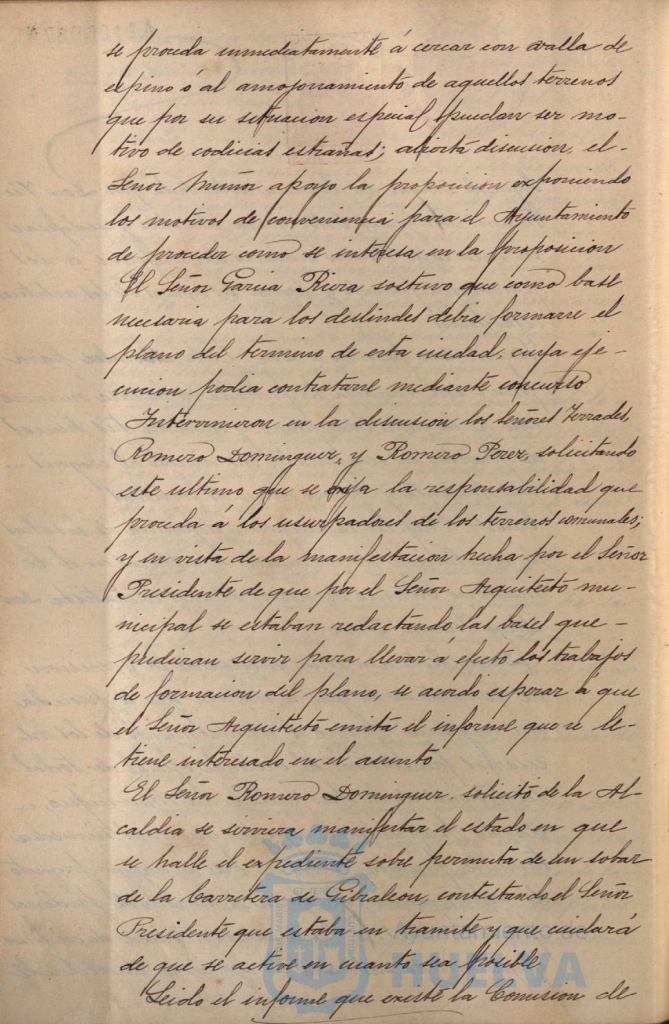 se proceda inmediatamente á cercar con valla de
espino ó al amojonamiento de aquellos terrenos
que por su situacion especial puedan ser mo-
tivo de codicias estrañas; abierta discusion, el-
Señor Muñoz apoyo la proposicion exponiendo
los motivos de conveniencia para el Ayuntamiento
de proceder como se interesa en la proposicion
El Señor Garcia Riera sostuvo que como base
necesaria para los deslindes debia formarse el
plano del termino de esta ciudad, cuya eje-
cucion podia contratarse mediante concurso
Intervinieron en la discusion los Señores Terrades,
Romero Dominguez, y Romero Perez, solicitando
este ultimo que se exija la responsabilidad que
proceda á los usurpadores de los terrenos comunales;
y en vista de la manifestacion hecha por el Señor
Presidente de que por el Señor Arquitecto mu-
nicipal se estaban redactando las bases que -
pudieran servir para llevar á efecto los trabajos
de formacion del plano, se acordo esperar á que
el Señor Arquitecto emita el informe que se le-
tiene interesado en el asunto
El Señor Romero Dominguez, solicitó de la Al-
caldia se sirviera manifestar el estado en que
se halle el expediente sobre permuta de un solar
de la Carretera de Gibraleon, contestando el Señor
Presidente que estaba en tramite y que cuidará
de que se active en cuanto sea posible
Leido el informe que existe la Comision de
Ayuntamiento de
HUELVA